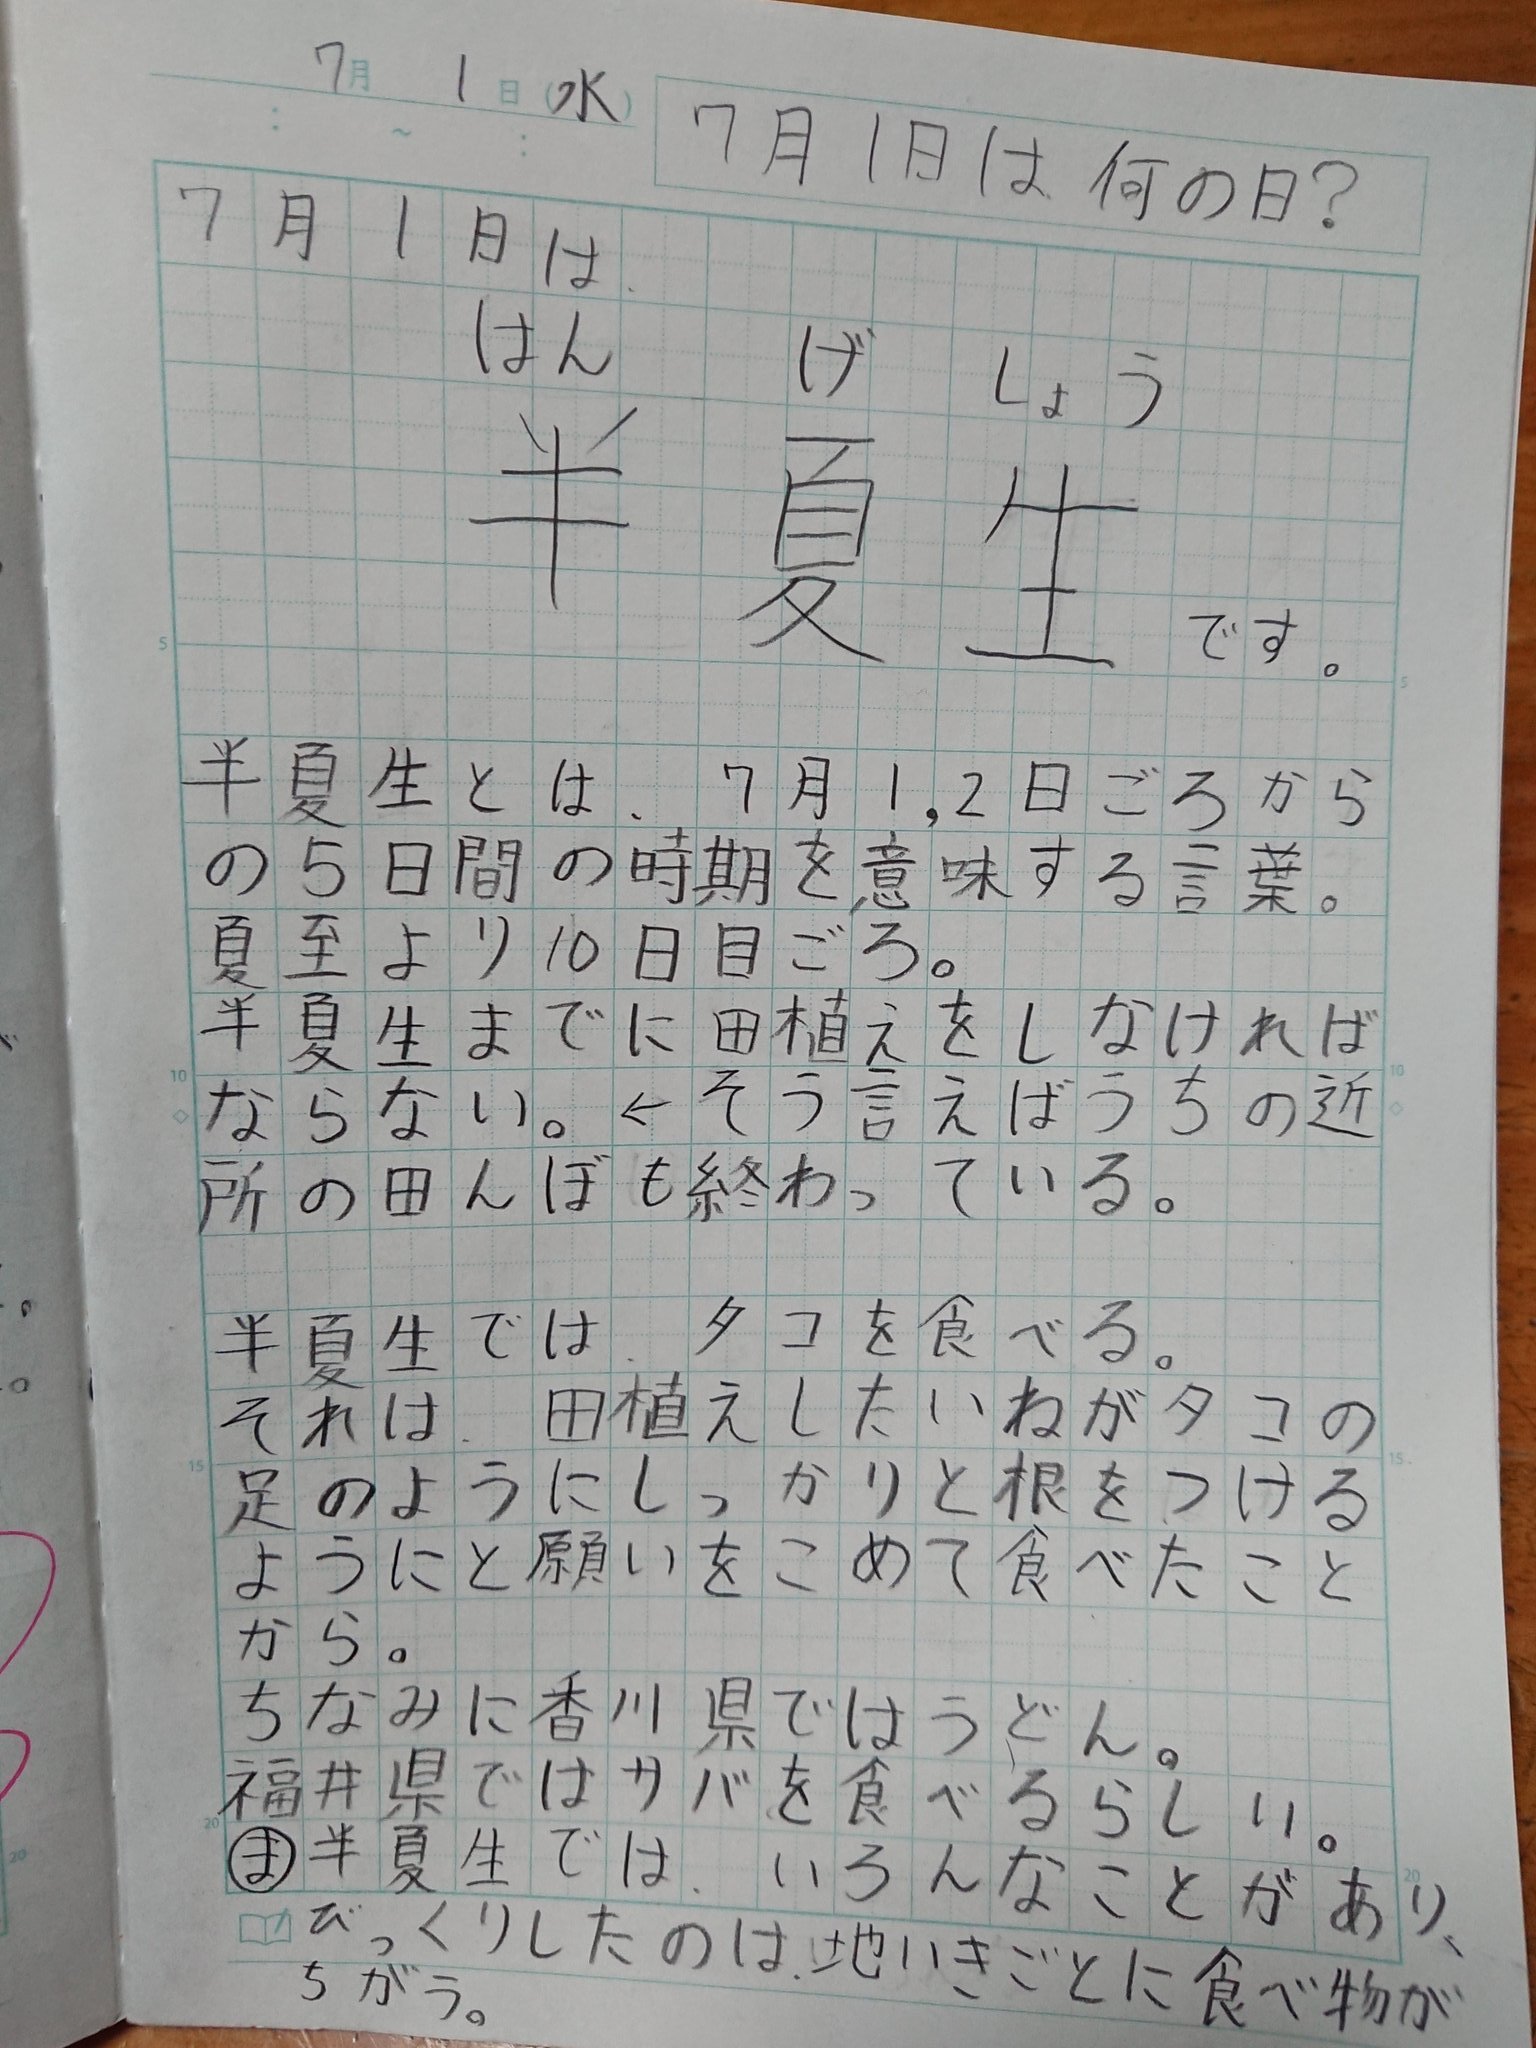 7月 1日(水)
7月1日は何の日?
7月1日は、
はん げ しょう
半夏生です。
半夏生とは、7月1,2日ごろから
の5日間の時期を意味する言葉。
夏至より10日目ごろ。
半夏生までに田植えをしなければ
ならない。←そう言えばうちの近
所の田んぼも終わっている。
半夏生では、タコを食べる。
それは、田植えしたいねがタコの
足のようにしっかりと根をつける
ようにと願いをこめて食べたこと
から。
ちなみに香川県ではうどん。
福井県ではサバを食べるらしい。
㋮半夏生では、いろんなことがあり、
びっくりしたのは、地いきごとに食べ物が
ちがう。